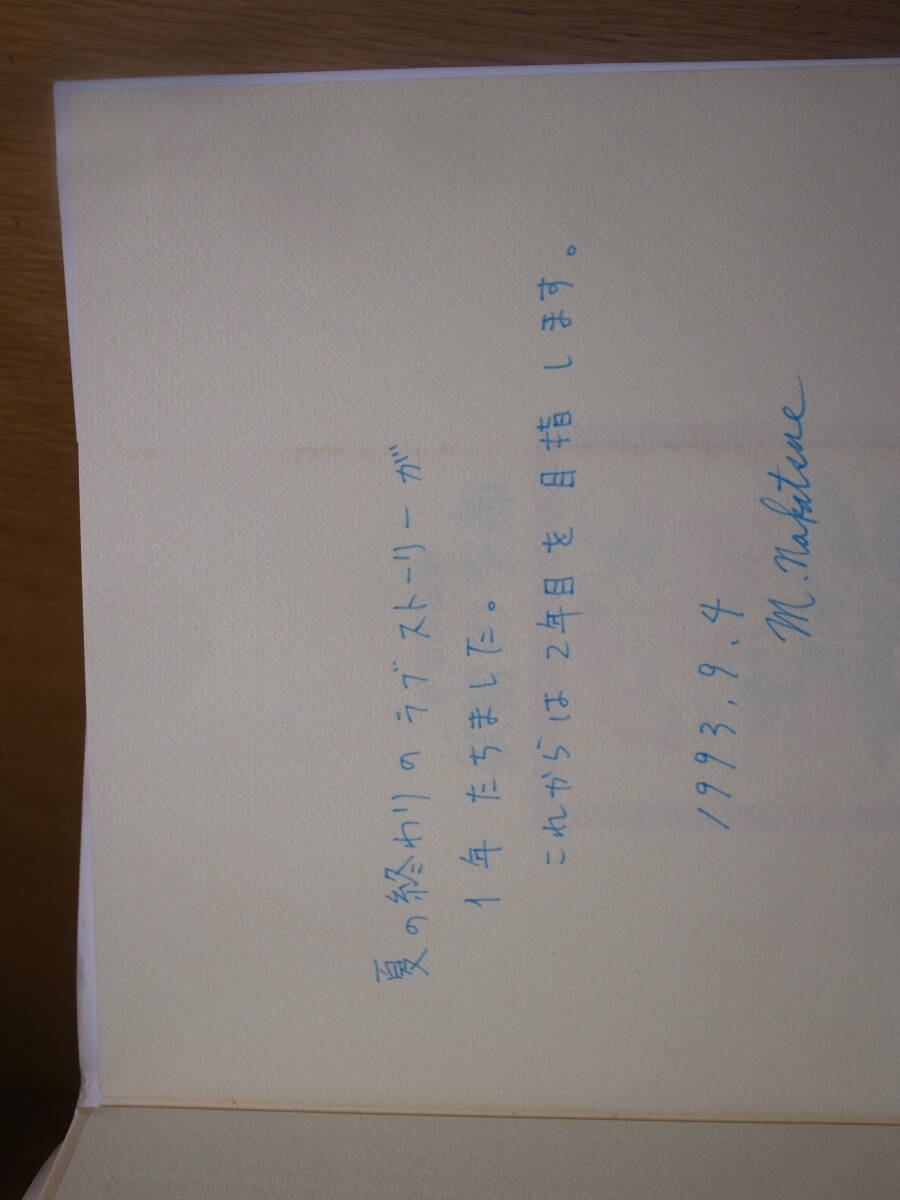 夏の終わりのラブストーリーが
1年たちました。
これからは2年目を目指します。
1993.9.4
M.Nakatsue